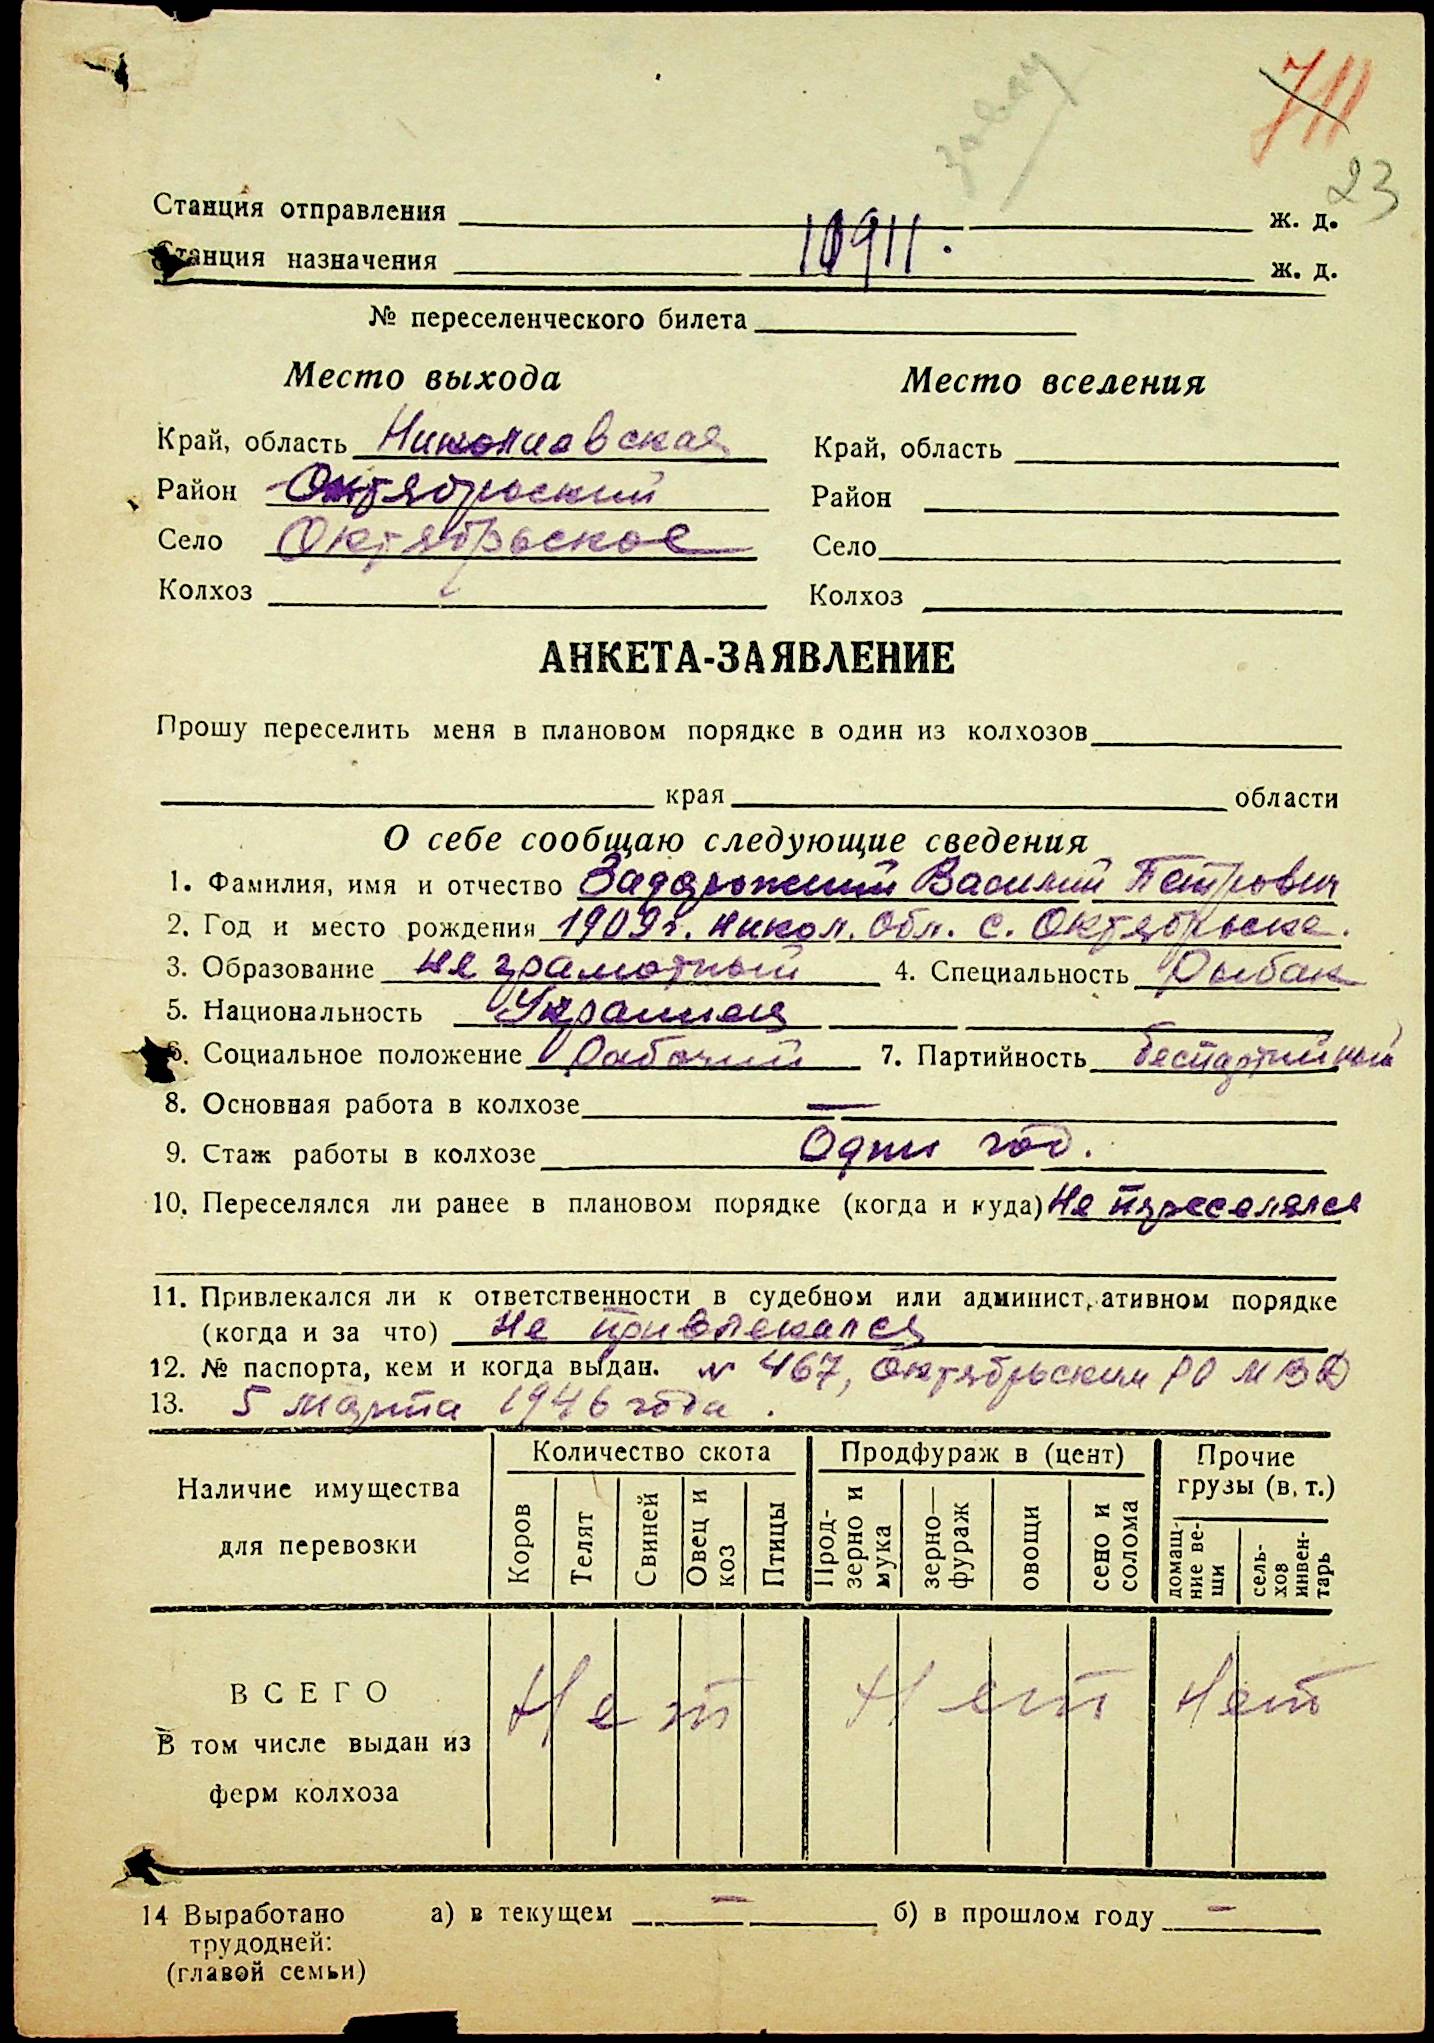 711
23
Станция отправления ж. д.
10911.
Станция назначения ж. д.
№ переселенческого билета
Место выхода
Край, область Николаевская
Район Октябрьский
Село Октябрьское
Колхоз
Место вселения
Край, область
Район
Село
Колхоз
АНКЕТА-ЗАЯВЛЕНИЕ
Прошу переселить меня в плановом порядке в один из колхозов
края области
О себе сообщаю следующие сведения
1. Фамилия, имя и отчество Задорожний Василий Петрович
2. Год и место рождения 1909 г. Никол. Обл. с. Октябрьске.
3. Образование не грамотный 4. Специальность Рыбак
5. Национальность Украинец
6. Социальное положение Рабочий 7. Партийность беспартийный
8. Основная работа в колхозе —
9. Стаж работы в колхозе Один год.
10. Переселялся ли ранее в плановом порядке (когда и куда) Не переселялся
11. Привлекался ли к ответственности в судебном или административном порядке
(когда и за что) Не привлекался
12. № паспорта, кем и когда выдан. № 467, Октябрьским РО МВД
13. 5 марта 1946 года.
Наличие имущества для перевозки
Количество скота
Продфураж в (цент)
Прочие грузы (в. т.)
Коров
Телят
Свиней
Овец и коз
Птицы
Прод-зерно и мука
зерно—фураж
овощи
сено и солома
домаш-ние ве-щи
сель-хов инвен-тарь
ВСЕГО Нет Нет Нет
В том числе выдан из
ферм колхоза
14 Выработано а) в текущем — б) в прошлом году —
трудодней:
(главой семьи)